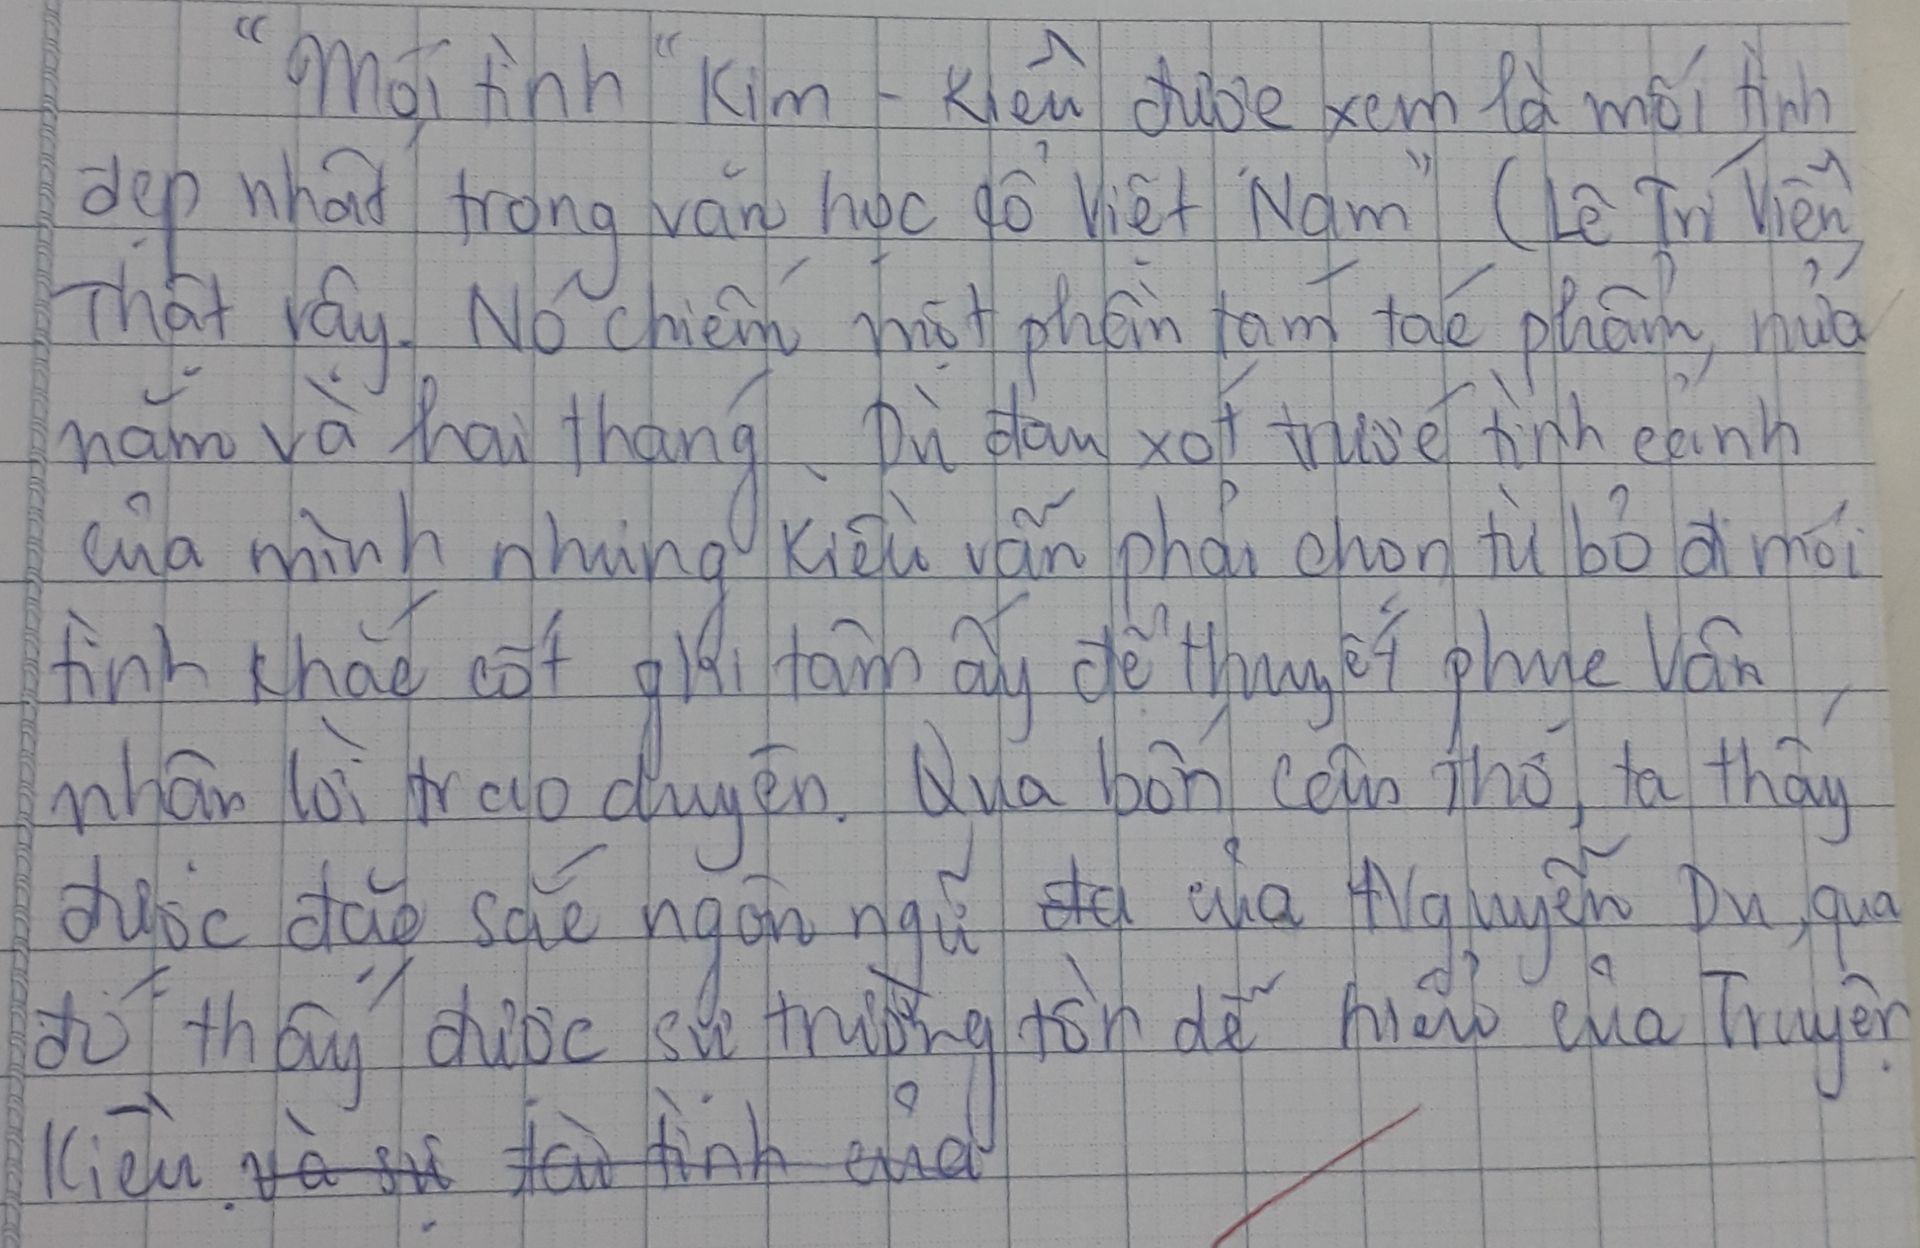 "Mối tình " Kim - Kiều được xem là mối tình
đẹp nhất trong văn học cổ Việt Nam" (Lê Trí Viễn,
Thật vậy. Nó chiếm một phần tám tác phẩm, nửa
năm và hai tháng. Dù đau xót trước tình cảnh
của mình nhưng Kiều vẫn phải chọn từ bỏ đi mối
tình khắc cốt ghi tâm ấy để thuyết phục Vân
nhận lời trao duyên. Qua bốn câu thơ, ta thấy
được đặc sắc ngôn ngữ của Nguyễn Du, qua
đó thấy được sự trường tồn dễ hiểu của Truyện
Kiều. và sự tài tình của